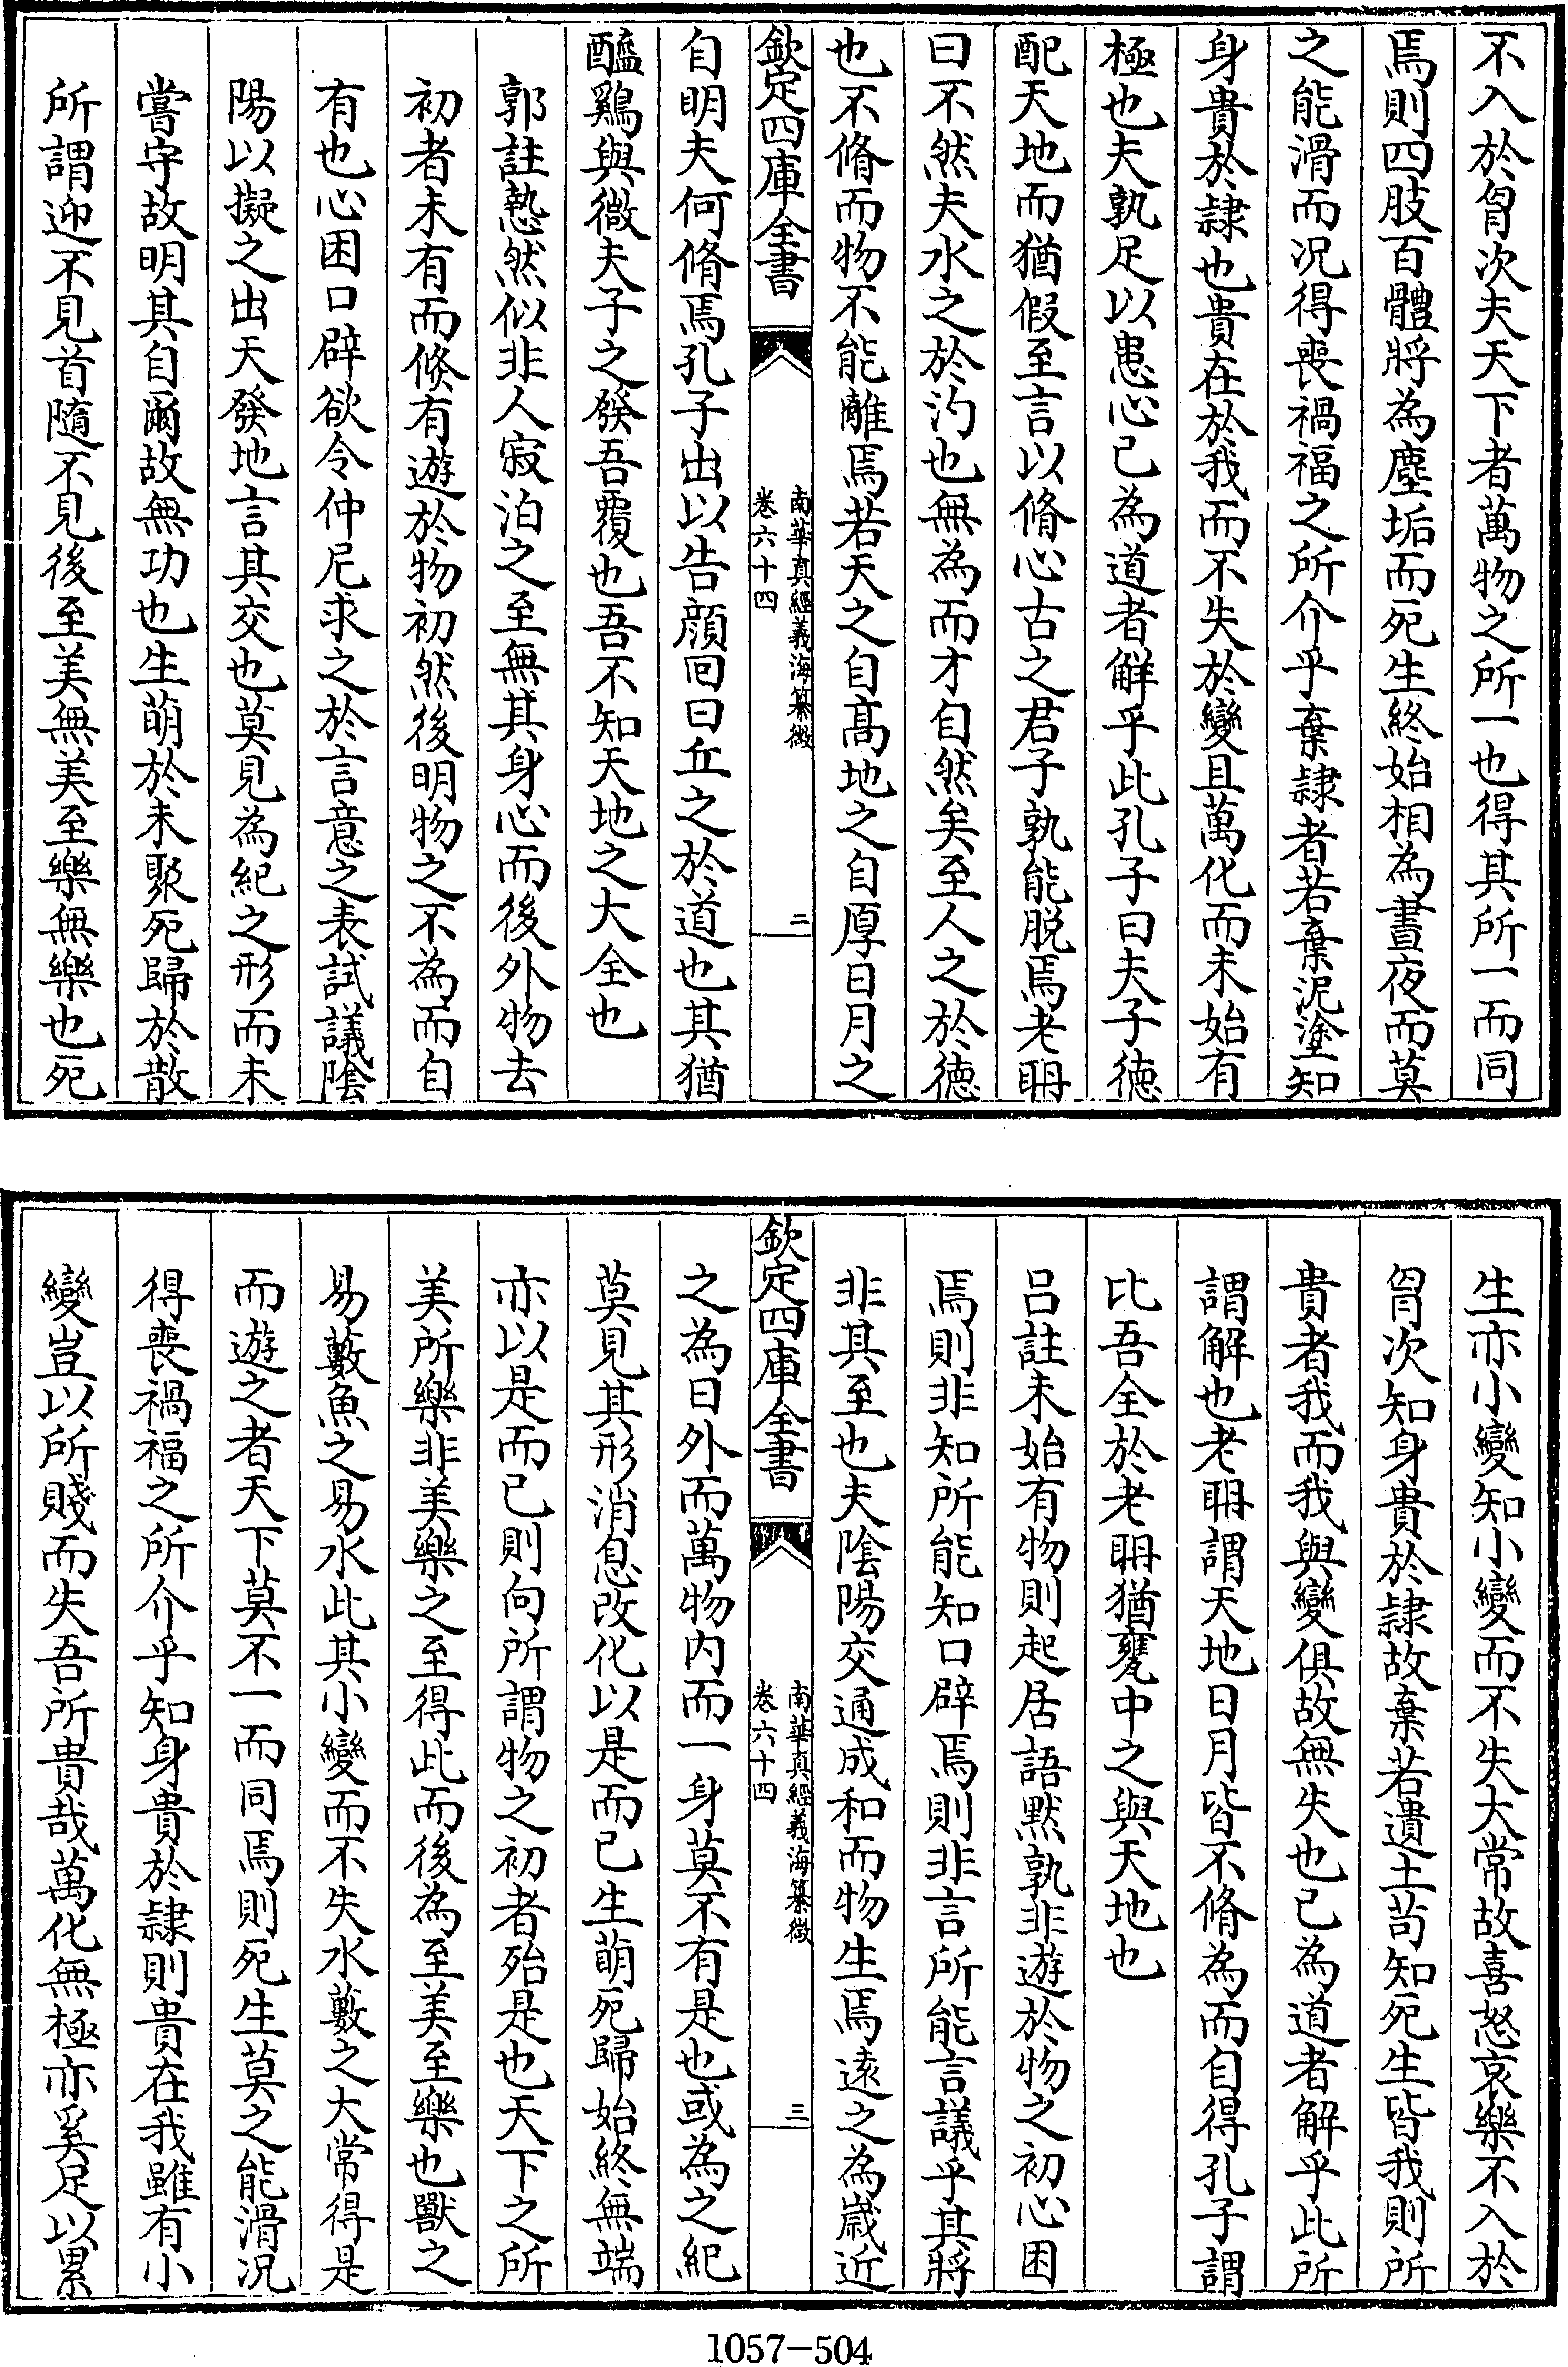 不入於胷次夫天下者萬物之所一也得其所一而同
焉則四肢百體將為塵垢而死生終始相為晝夜而莫
之能滑而况得喪禍福之所介乎棄隷者若棄泥塗知
身貴於隷也貴在於我而不失於變且萬化而未始有
極也夫孰足以患心已為道者觧乎此孔子曰夫子徳
配天地而猶假至言以脩心古之君子孰能脱焉老聃
曰不然夫水之於汋也無為而才自然矣至人之於徳
也不脩而物不能離焉若天之自髙地之自厚日月之
欽定四庫全書
南華真經義海纂微
卷六十四
二
自明夫何脩焉孔子出以告顔囘曰丘之於道也其猶
醯鷄與微夫子之發吾覆也吾不知天地之大全也
郭註慹然似非人寂泊之至無其身心而後外物去
初者未有而倏有遊於物初然後明物之不為而自
有也心困口辟欲令仲尼求之於言意之表試議陰
陽以擬之出天發地言其交也莫見為紀之形而未
嘗守故明其自爾故無功也生萌於未聚死歸於散
所謂迎不見首隨不見後至美無美至樂無樂也死
生亦小變知小變而不失大常故喜怒哀樂不入於
胷次知身貴於隷故棄若遺土苟知死生皆我則所
貴者我而我與變俱故無失也已為道者解乎此所
謂解也老聃謂天地日月皆不脩為而自得孔子謂
比吾全於老聃猶甕中之與天地也
吕註未始有物則起居語黙孰非遊於物之初心困
焉則非知所能知口辟焉則非言所能言議乎其將
非其至也夫陰陽交通成和而物生焉遠之為嵗近
欽定四庫全書
南華真經義海纂微
卷六十四
三
之為日外而萬物内而一身莫不有是也或為之紀
莫見其形消息改化以是而已生萌死歸始終無端
亦以是而已則向所謂物之初者殆是也天下之所
美所樂非美樂之至得此而後為至美至樂也獸之
易藪魚之易水此其小變而不失水藪之大常得是
而遊之者天下莫不一而同焉則死生莫之能滑况
得喪禍福之所介乎知身貴於隷則貴在我雖有小
變豈以所賤而失吾所貴哉萬化無極亦奚足以累
1057-504